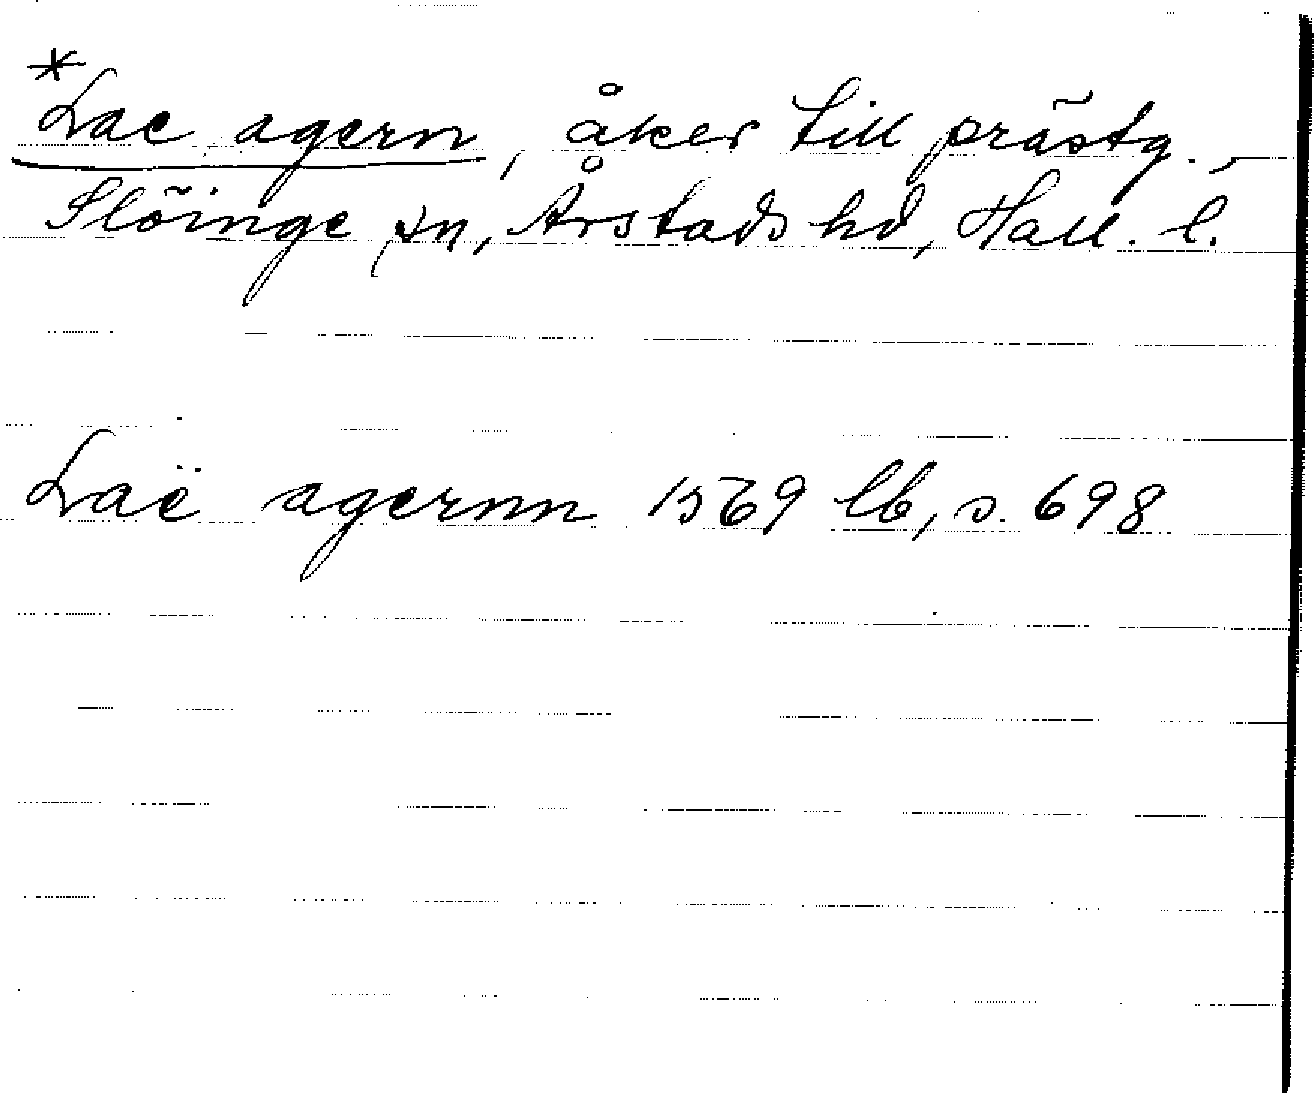 *Lae agern, åker till prästg.,
Slöinge sn, Årstads hd, Hall. l.
Laë agernn 1569 lb, s. 698